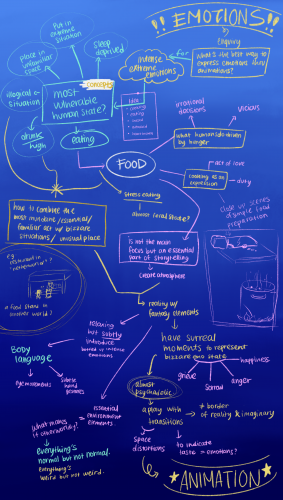 EMOTIONS
Inquiry
What's the best way to
express emotions thru
animations?
for
intense
extreme
emotions
Put in
extreme
situation
place in
unfamiliar
space
sleep
deprived
illogical
situation
most
vulnerable
human state?
drunk
high
eating
FOOD
irrational
decisions
vicious
what humans do driven
by hunger
act of love
cooking as an
expression
duty
close up scenes
of single food
preparation
stress eating
almost feral state?
how to combine the
most mundane/essential/
familiar act w/ bizzare
situations/ unusual place
is not the main
focus but an essential
part of storytelling
create atmosphere
eg
restaurant in
"netherworld"?
a food stand to
another world?
reality w/
fantasy elements
relaxing
but subtly
introduce
buried w/ intense
emotions
have surreal
moments to represent
bizzare emo state
happiness
grieve
surreal
anger
Body
language
eye movements
subtle
hand
gestures
almost
psychadelic
essential
environment
elements
a play with
transitions
≠ border
of reality & imaginary
what makes
it eworldly?
Everything's
normal but not normal.
Everything's
weird but not weird.
space
distortions
to indicate
taste = emotions?
ANIMATION